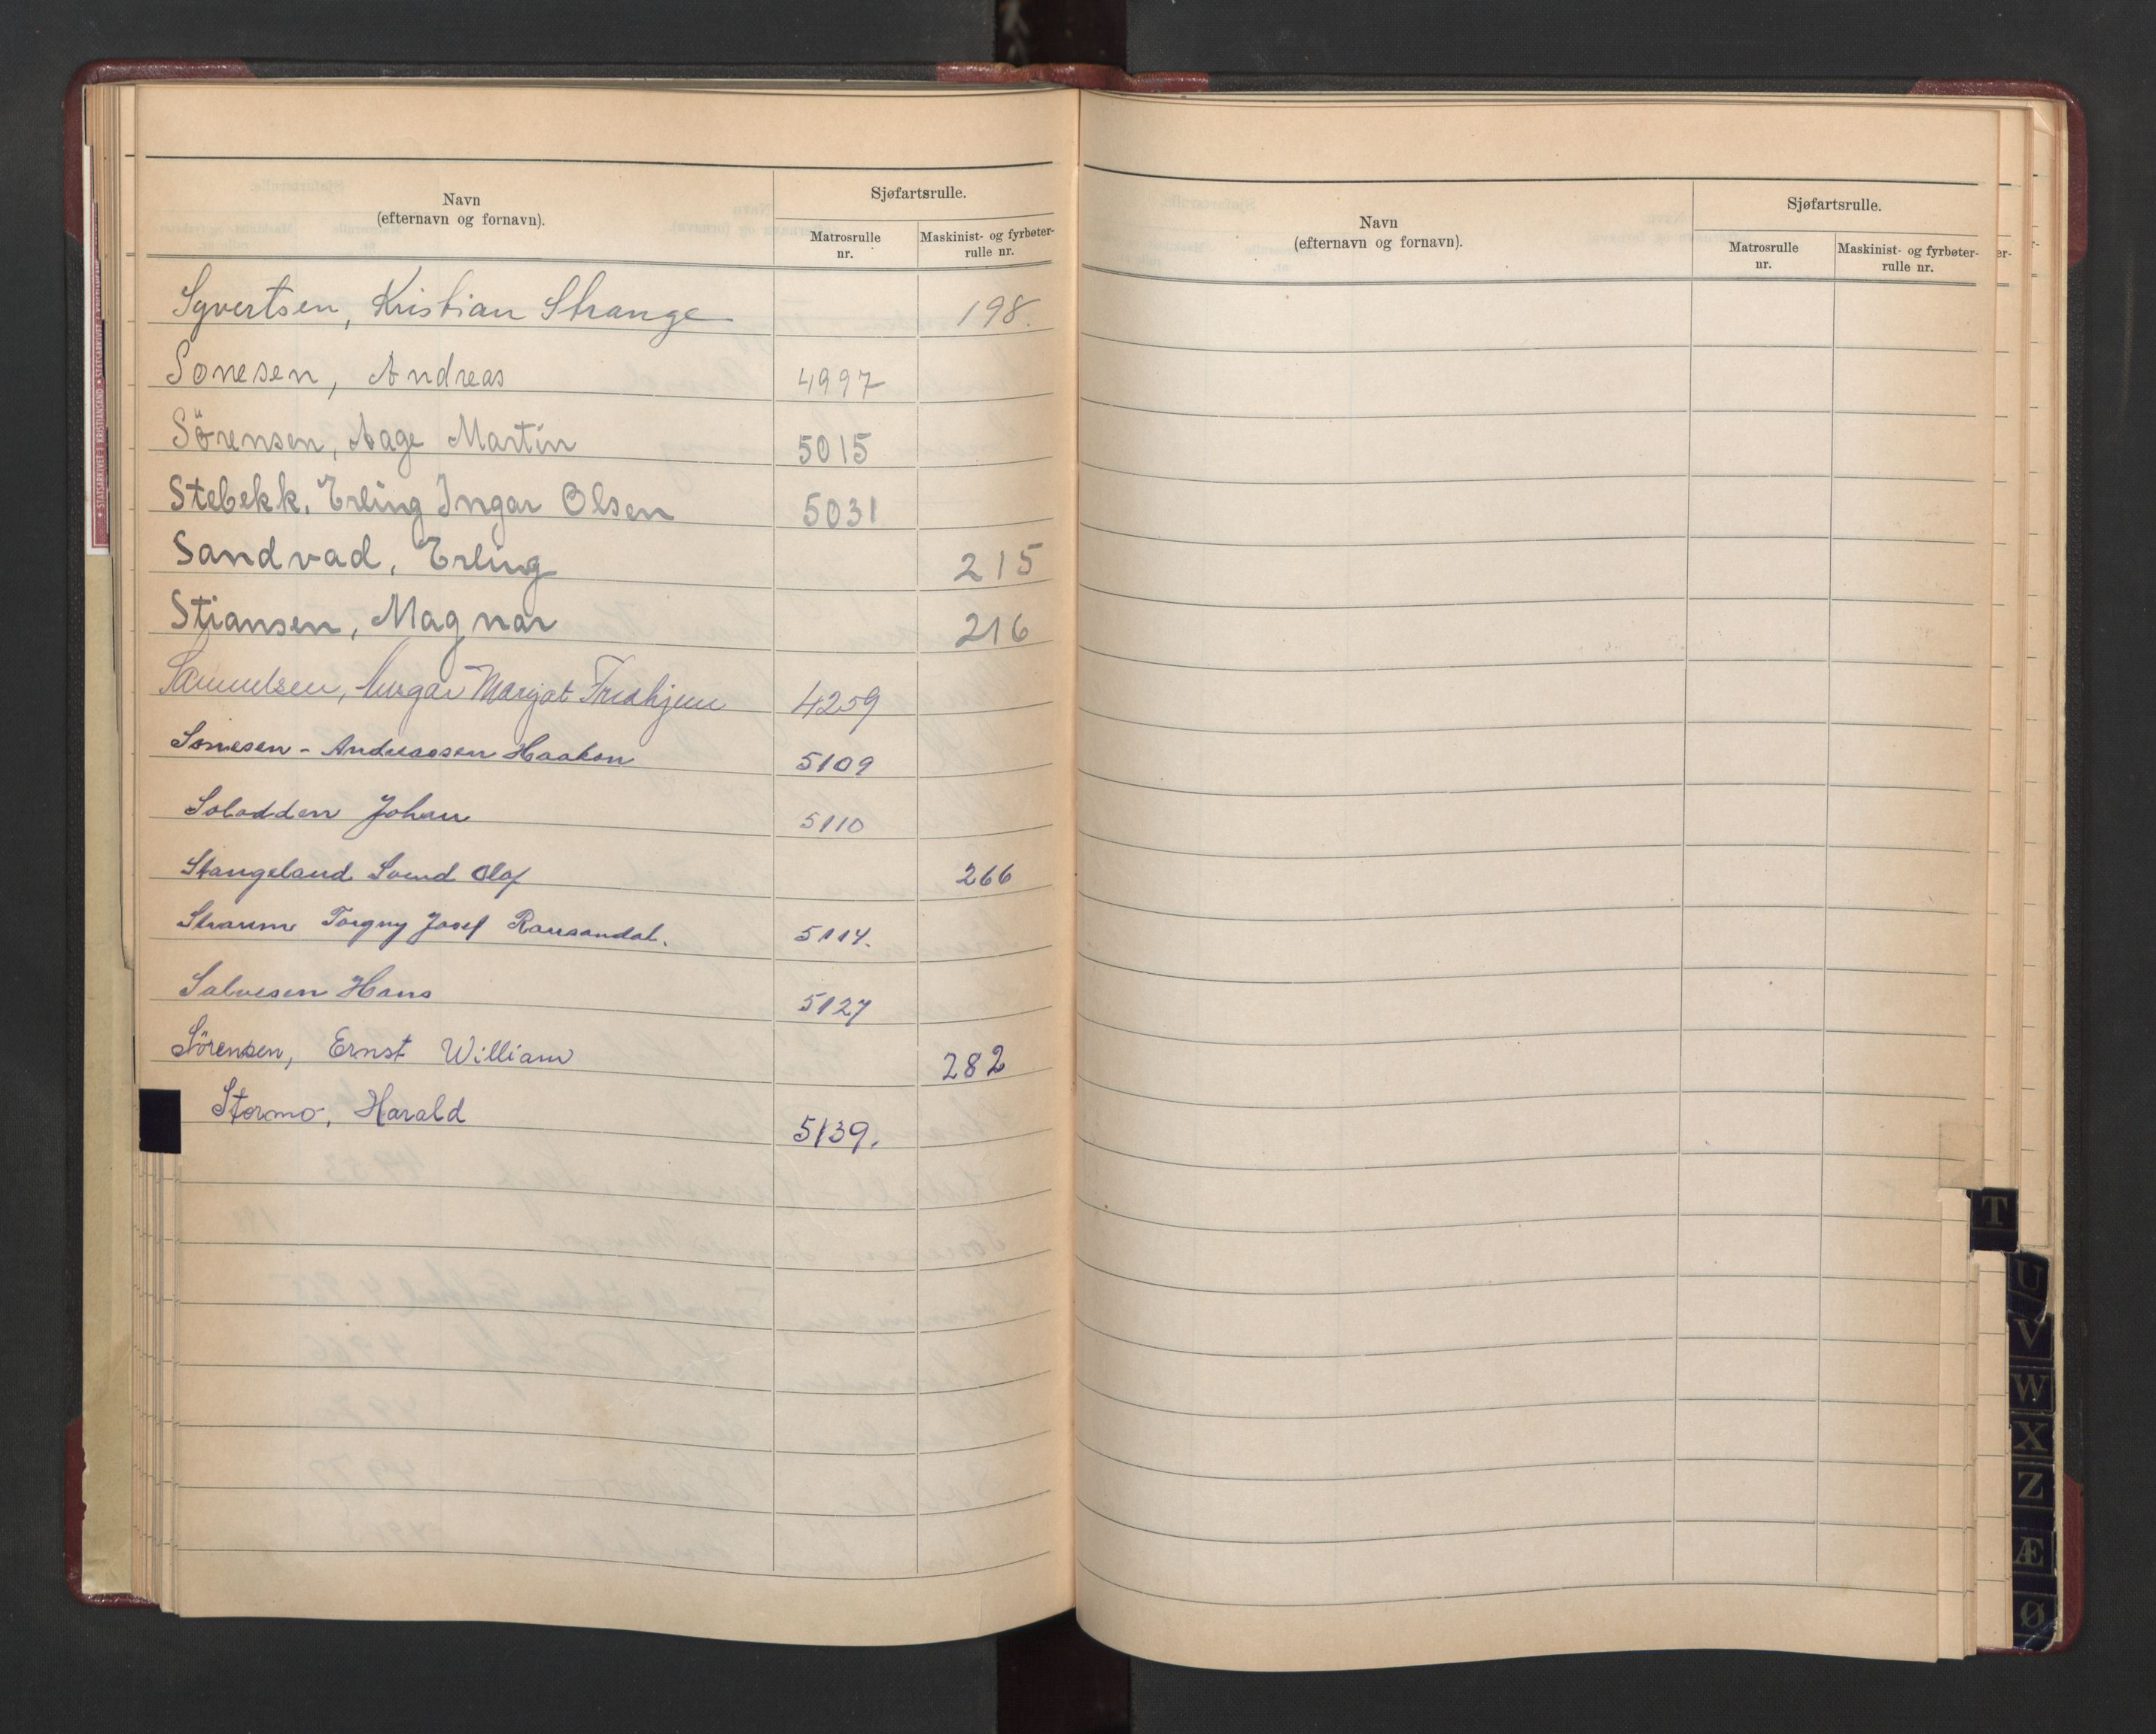 Navn
(efternavn og fornavn).
Sjøfartsrulle.
Matrosrulle
nr.
Maskinist- og fyrbøter-
rulle nr.
Syvertsen, Kristian Strange 198.
Sonesen, Andreas 4997
Sörensen, Aage Martin 5015
Stebekk, Erling Ingar Olsen 5031
Sandvad, Erling 215
Stiansen, Magnar 216
Samuelsen, Ansgar Margot 4259
Sonesen - Andreassen Haakon 5109
Solodden Johan 5110
Stangeland Svend Olaf 266
Straume Torgny Josef 5114.
Salvesen Hans 5127
Sörensen, Ernst William 282
Stormo, Harald 5139.
Navn
(efternavn og fornavn).
Sjøfartsrulle.
Matrosrulle
nr.
Maskinist- og fyrbøter-
rulle nr.
er-
T
U
V
W
X
Z
Æ
Ø